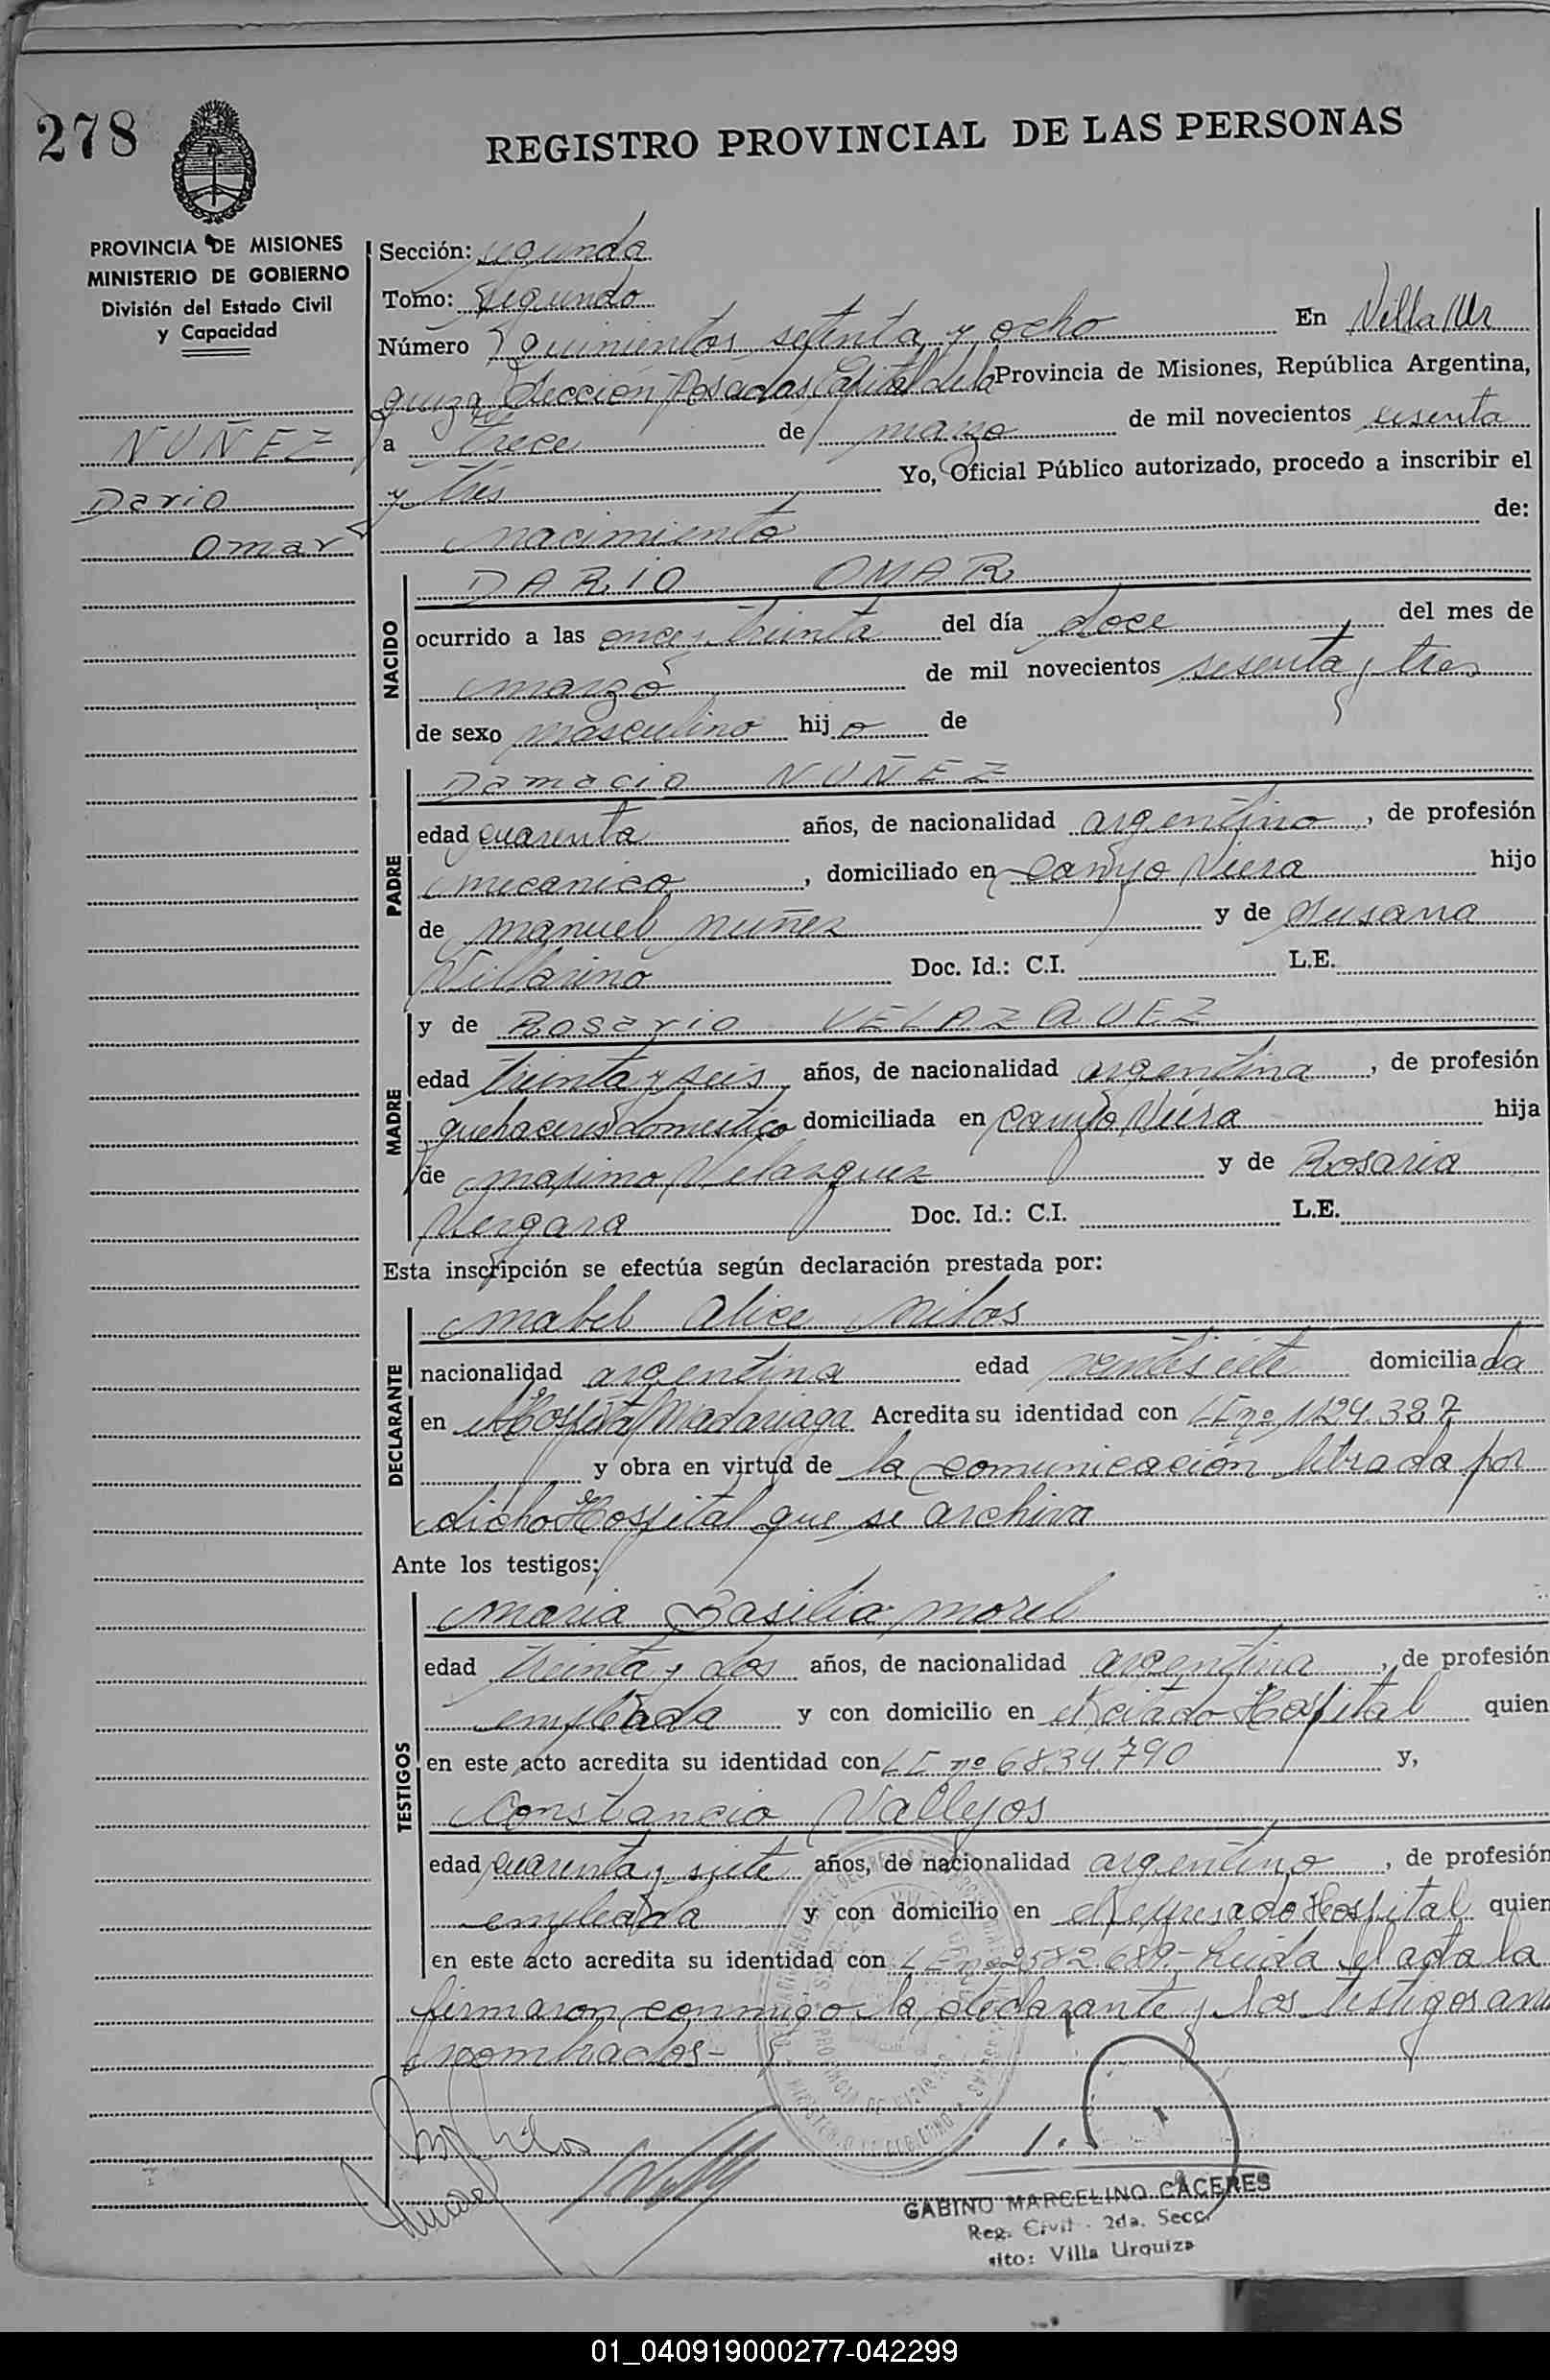 278
REGISTRO PROVINCIAL DE LAS PERSONAS
PROVINCIA DE MISIONES
MINISTERIO DE GOBIERNO
División del Estado Civil
y Capacidad
NUÑEZ
Dario
Omar
Sección: segunda
Tomo: Segundo
Número quinientos setenta y ocho En Villa Ur
quiza Sección Posadas, Capital de la Provincia de Misiones, República Argentina,
a trece de marzo de mil novecientos sesenta
y tres Yo, Oficial Público autorizado, procedo a inscribir el
nacimiento de:
NACIDO
DARIO OMAR
ocurrido a las once y treinta del día doce del mes de
marzo de mil novecientos sesenta y tres
de sexo masculino hijo de
PADRE
Damacio NUÑEZ
edad cuarenta años, de nacionalidad argentino, de profesión
mecanico, domiciliado en Campo Viera hijo
de Manuel Nuñez y de Susana
Villarino Doc. Id.: C.I. L.E.
MADRE
y de Rosario VELAZQUEZ
edad treinta y seis años, de nacionalidad argentina, de profesión
quehaceres domestico domiciliada en Campo Viera hija
de Maximo Velazquez y de Rosaria
Vergara Doc. Id.: C.I. L.E.
Esta inscripción se efectúa según declaración prestada por:
DECLARANTE
Mabel Alice
nacionalidad argentina edad veintisiete domiciliada
en el Hospital Madariaga Acredita su identidad con nº 1124.387
y obra en virtud de la comunicación librada por
dicho Hospital que se archiva
Ante los testigos:
TESTIGOS
Maria Basilia Morel
edad treinta y dos años, de nacionalidad argentina, de profesión
empleada y con domicilio en el citado Hospital quien
en este acto acredita su identidad con nº 6834.790 y,
Constancio Vallejos
edad cuarenta y siete años, de nacionalidad argentino, de profesión
empleada y con domicilio en el expresado Hospital quien
en este acto acredita su identidad con LE nº 2582.689.- Leida el acta la
firmaron conmigo la declarante y los testigos
nombrados-
GABINO MARCELINO CACERES
Reg. Civil - 2da. Secc.
sito: Villa Urquiza
01_040919000277-042299